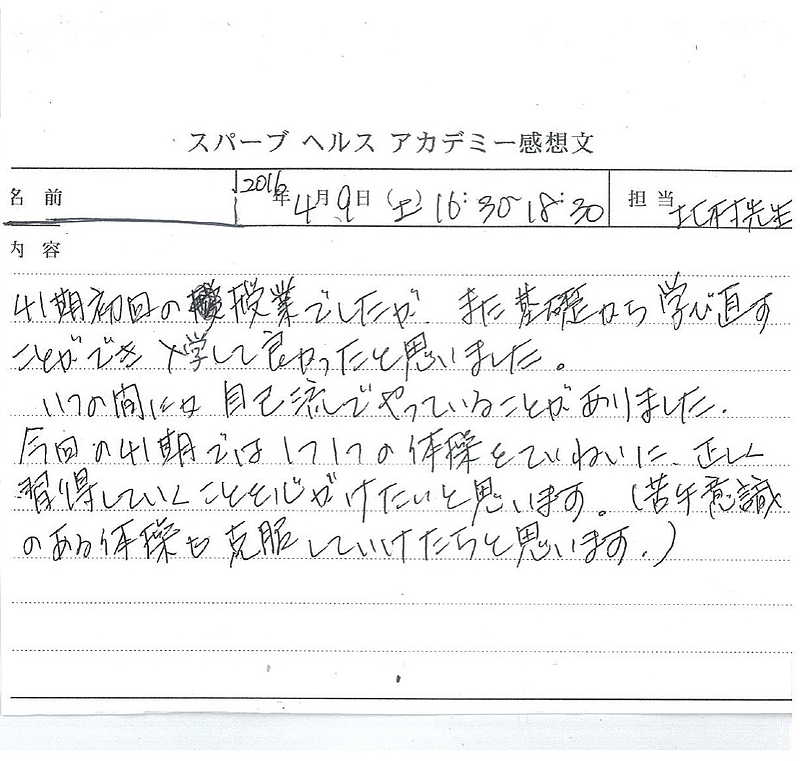 スパーブ ヘルス アカデミー感想文
名 前 2016年4月9日(土)16:30~18:30 担 当 北村先生
内 容
41期初回の授業でしたが、また基礎から学び直す
ことができ入学して良かったと思いました。
いつの間にか自己流でやっていることがありました.
今回の41期では1つ1つの体操をていねいに、正しく
習得していくことを心がけたいと思います。(苦手意識
のある体操も克服していけたらと思います.)